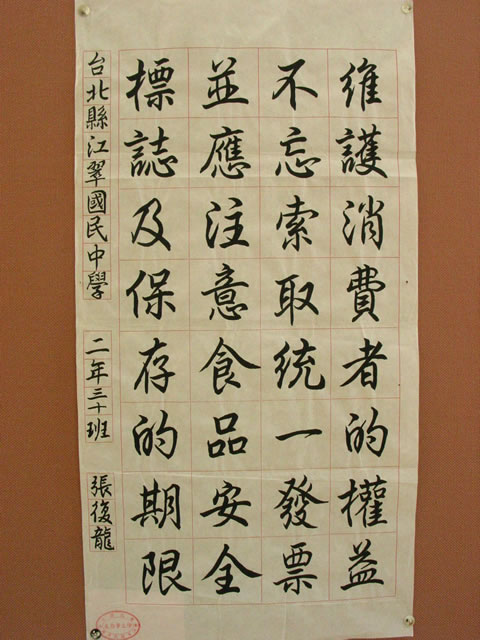 維護消費者的權益
不忘索取統一發票
並應注意食品安全
標誌及保存的期限
台北縣江翠國民中學 二年三十班 張復龍